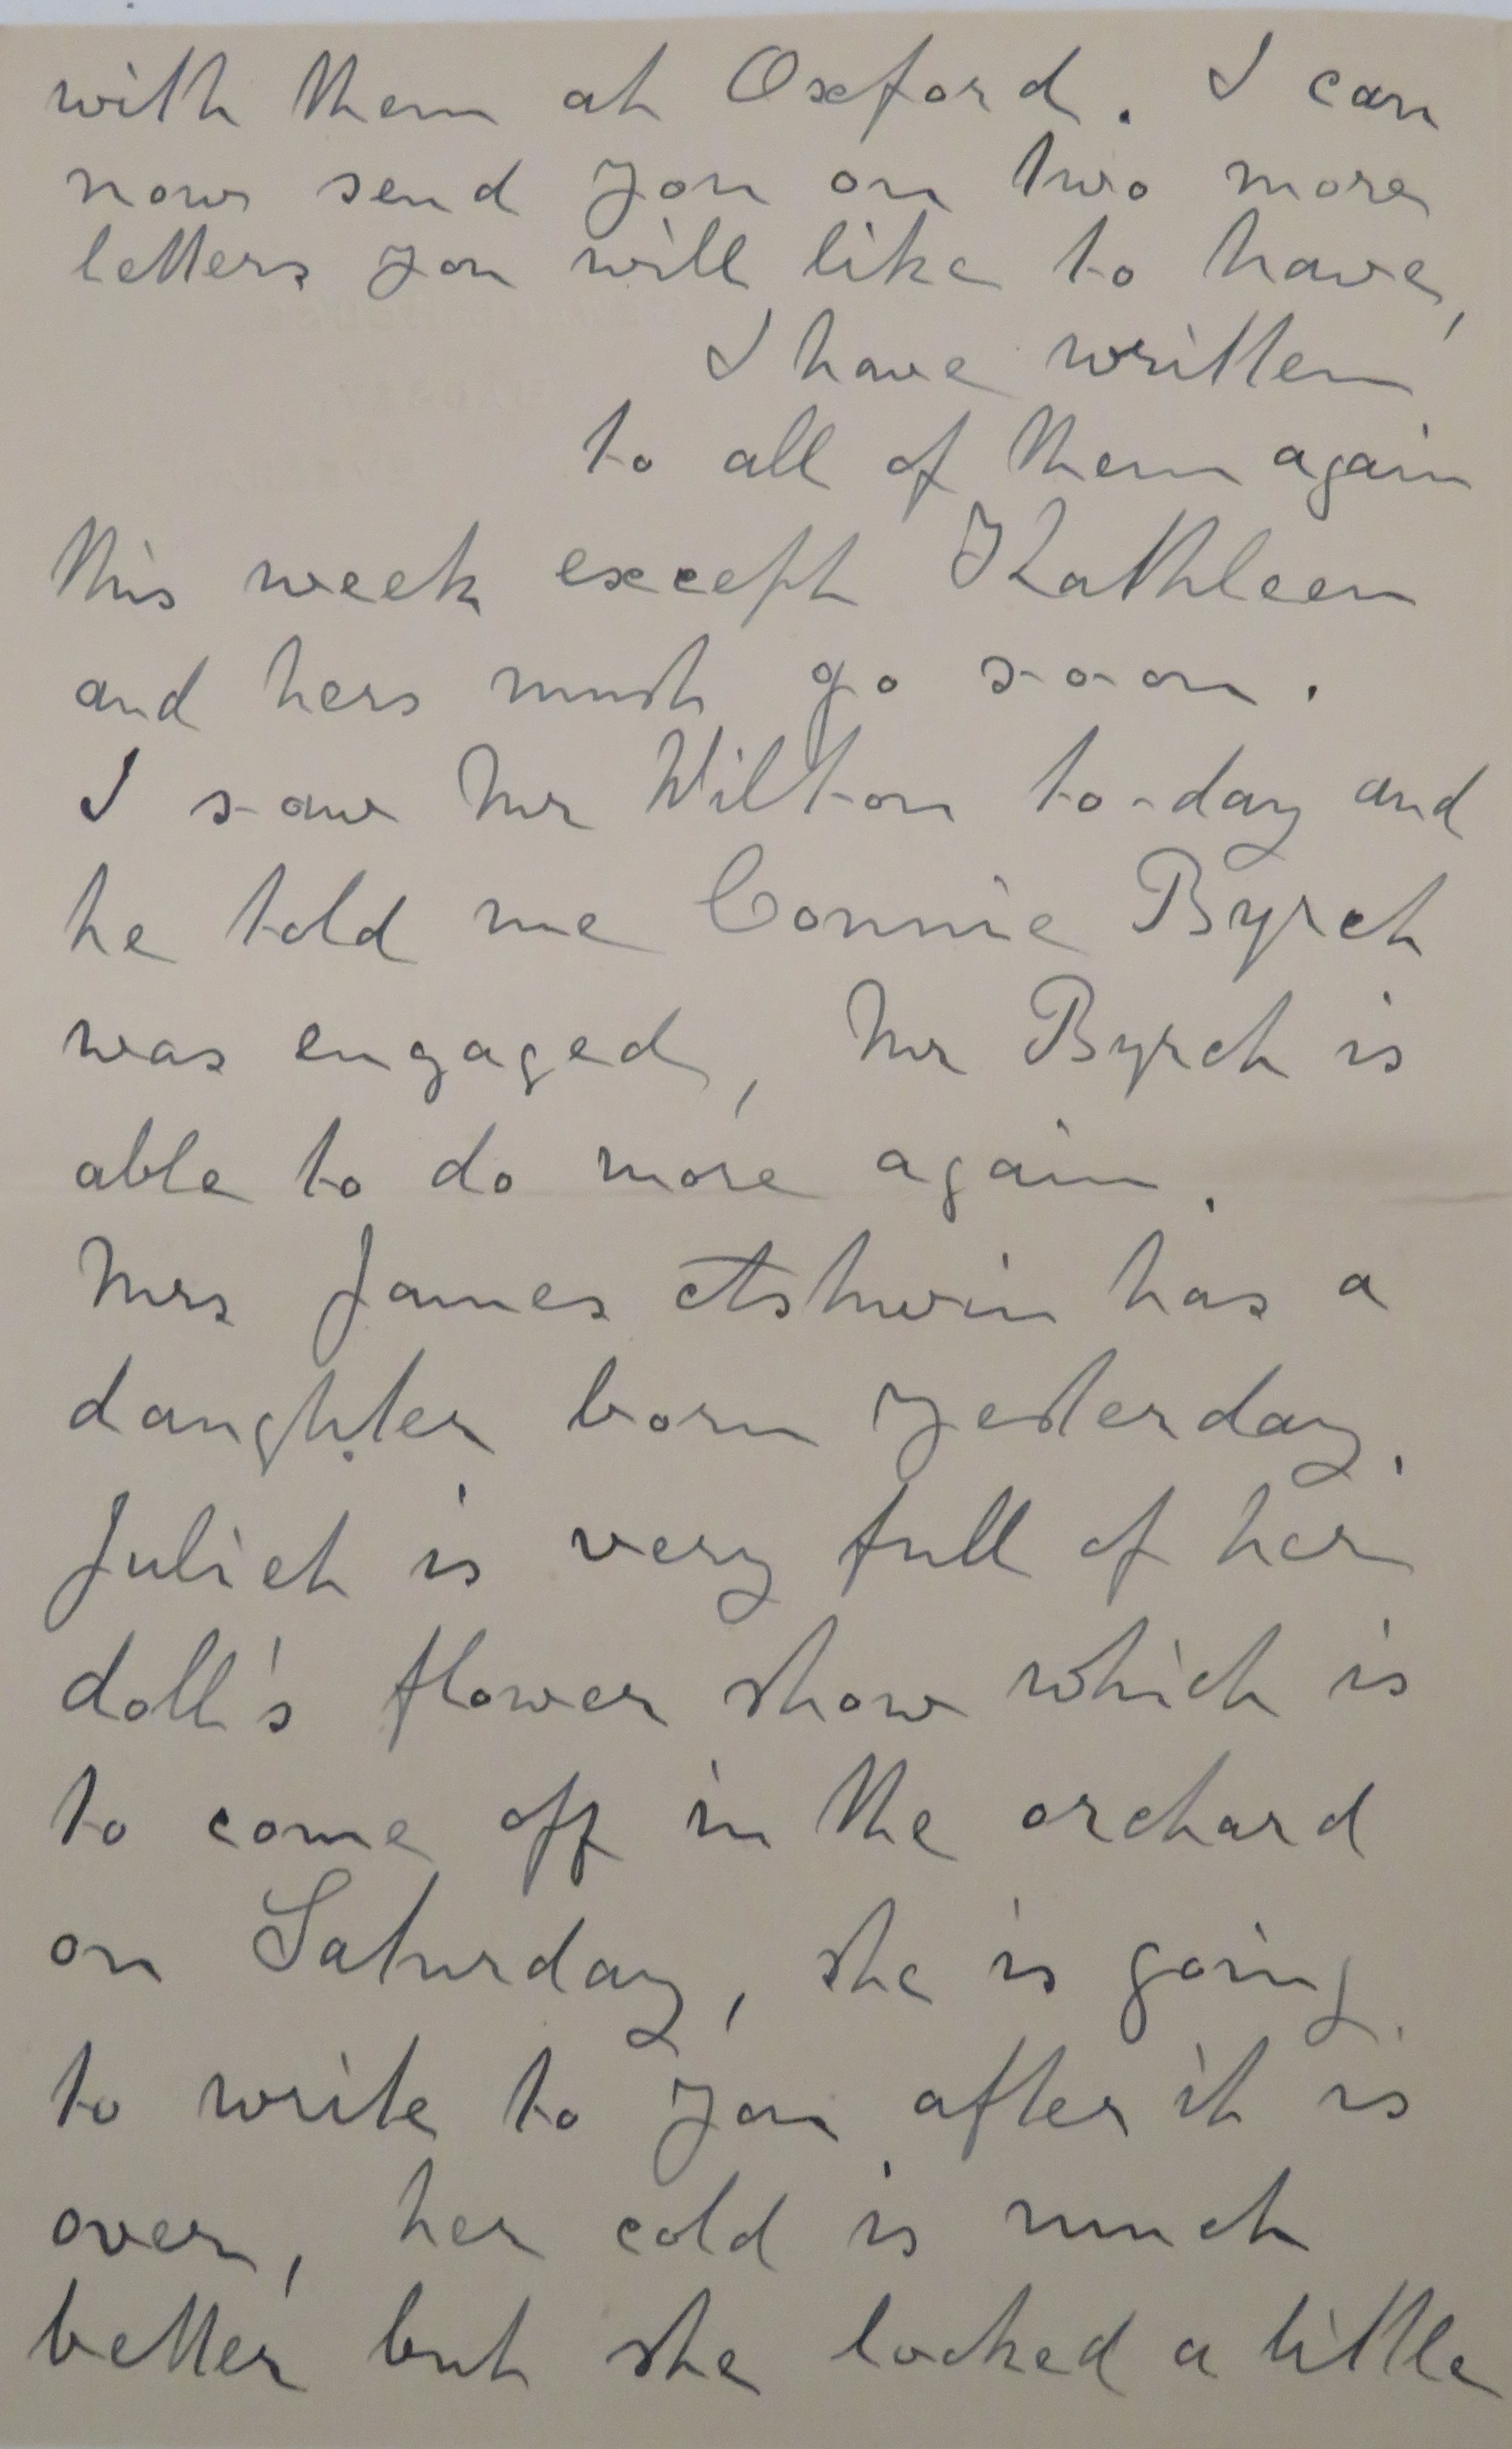 with them at Oxford. I can
now send you on two more
letters you will like to have,
I have written
to all of them again
this week except Kathleen
and hers must go soon.
I saw Mr Wilton to-day and
he told me Connie Byrch
was engaged, Mr Byrch is
able to do more again.
Mrs James Ashwin has a
daughter born yesterday.
Juliet is very full of her
doll's flower show which is
to come off in the orchard
on Saturday, she is going
to write to you after it is
over, her cold is much
better but she looked a little